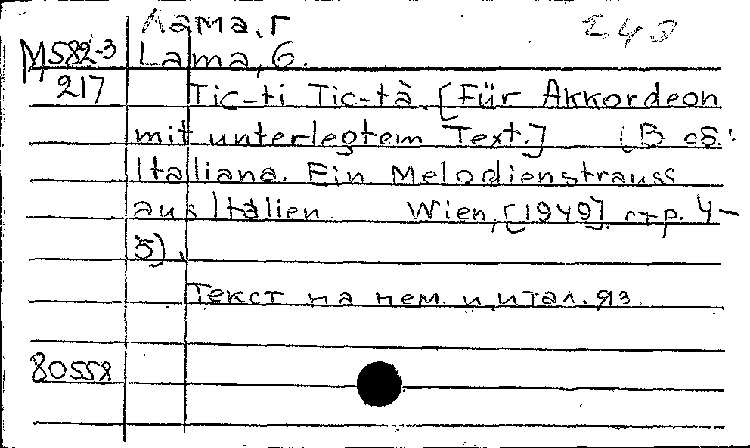 Лама, Г
248
М 582-3
217
Lama, G.
Tic-ti Tic-tà. [Für Akkordeon
mit unterlegtem Text.] (В сб.:
Italiana. Ein Melodienstrauss
aus Italien Wien, [1949]. стр. 4-
5).
Текст на нем. и итал. яз.
80558